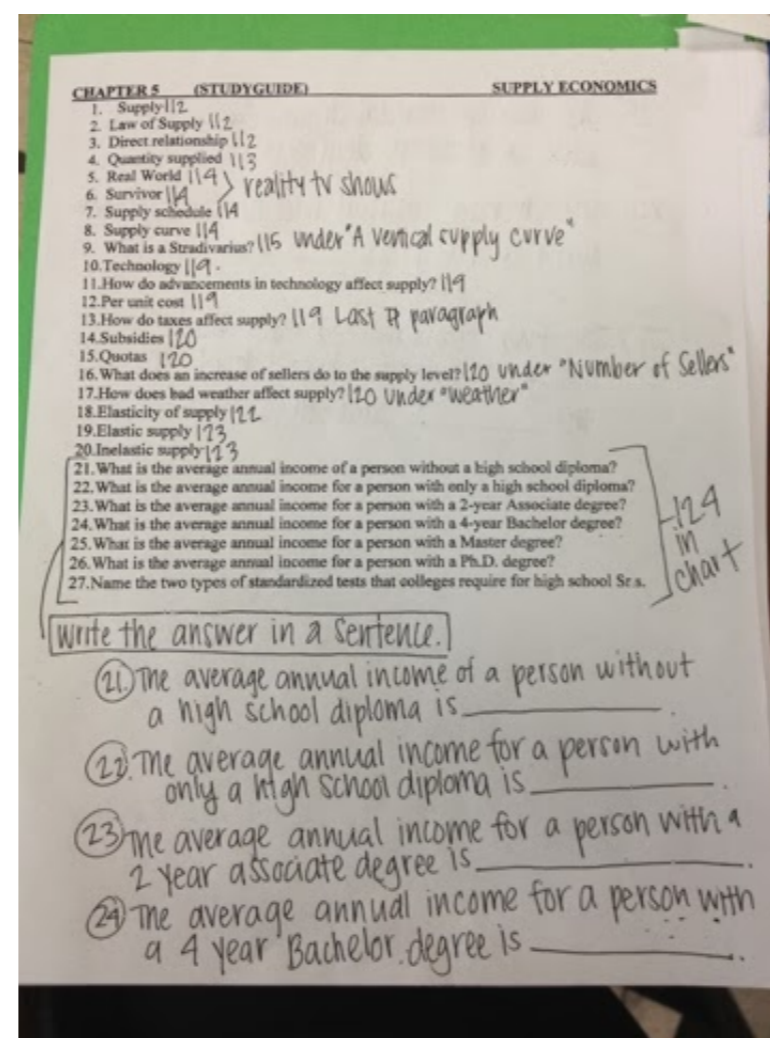 CHAPTER 5 (STUDYGUIDE) SUPPLY ECONOMICS
1. Supply 112
2. Law of Supply 112
3. Direct relationship 112
4. Quantity supplied 113
5. Real World 114
reality tv shows
6. Survivor 114
7. Supply schedule 114
8. Supply curve 114
9. What is a Stradivarius? 115 under "A vertical supply curve"
10.Technology 119.
11.How do advancements in technology affect supply? 119
12.Per unit cost 119
13.How do taxes affect supply? 119 Last paragraph
14.Subsidies 120
15.Quotas 120
16.What does an increase of sellers do to the supply level? 120 under "Number of Sellers"
17.How does bad weather affect supply? 120 under "weather"
18.Elasticity of supply 122
19.Elastic supply 123
20.Inelastic supply 123
21.What is the average annual income of a person without a high school diploma?
22.What is the average annual income for a person with only a high school diploma?
23.What is the average annual income for a person with a 2-year Associate degree?
24.What is the average annual income for a person with a 4-year Bachelor degree?
25.What is the average annual income for a person with a Master degree?
26.What is the average annual income for a person with a Ph.D. degree?
27.Name the two types of standardized tests that colleges require for high school Sr.s.
124
in
chart
Write the answer in a sentence.
21. The average annual income of a person without
a high school diploma is ________.
22. The average annual income for a person with
only a high school diploma is ________.
23 The average annual income for a person with a
2 year associate degree is ________.
24 The average annual income for a person with
a 4 year Bachelor degree is ________.